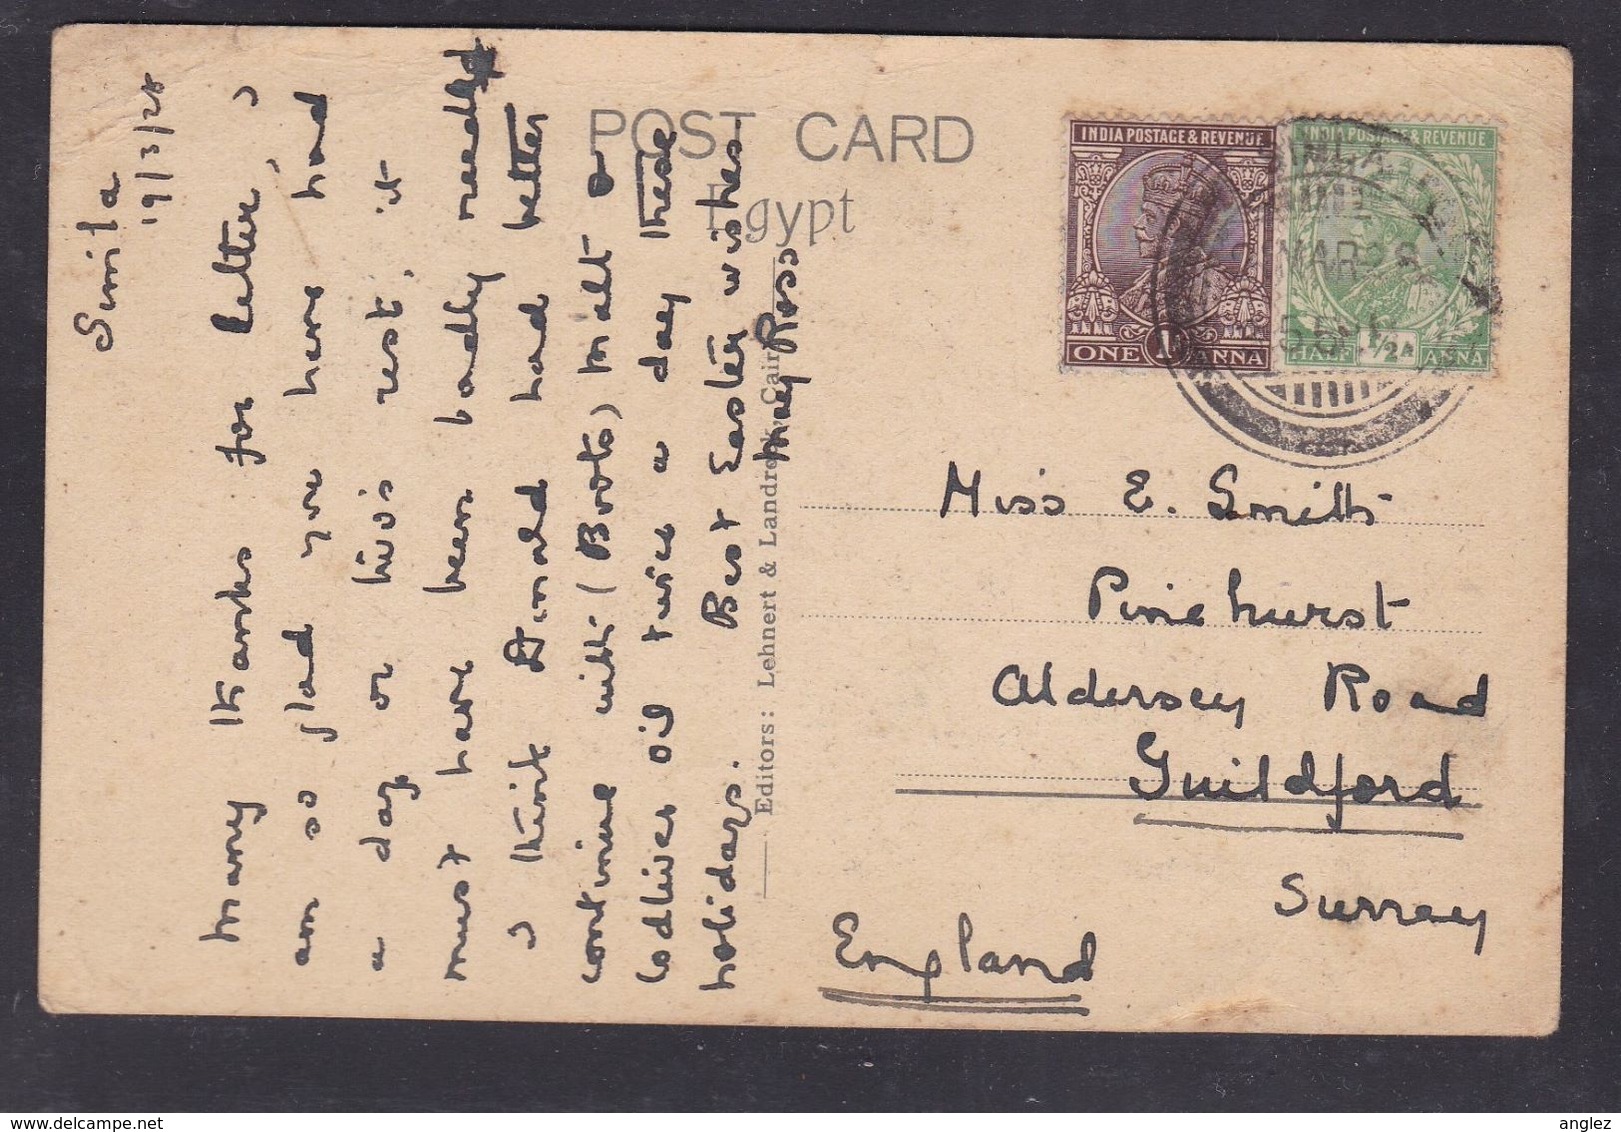 Simla
19/3/28
Many thanks for letter, I
am so glad you have had
a day or two's rest, it
must have been badly needed
I think Donald had better
continue with (Boots) Malt &
Codliver oil twice a day these
holidays. Best Easter wishes.
May Ross
POST CARD
Egypt
Editors: Lehnert & Landrock, Cairo
INDIA POSTAGE & REVENUE
ONE 1 ANNA
INDIA POSTAGE & REVENUE
HALF 1/2 A ANNA
SIMLA
MAR
Miss E. Smith
Pinehurst
Aldersey Road
Guildford
Surrey
England
anglez